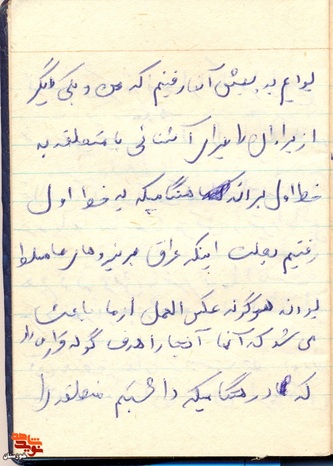 بودیم به پیش آنها رفتیم که من و یکی دیگر
از برادران را برای آشنائی با منطقه به
خط اول بردند هنگامیکه به خط اول
رفتیم بعلت اینکه عراق بر نیروهای ما مسلط
بودند هرگونه عکس العمل از ما باعث
می شد که آنها آنجا را هدف گوله قرار داد
که در هنگامیکه داشتیم منطقه را
نوید شاهد
خوزستان